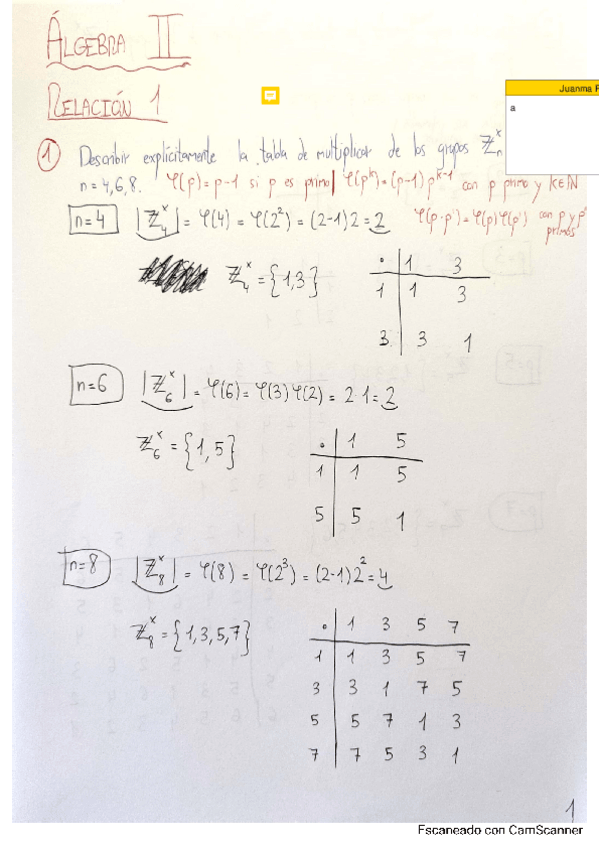 ÁLGEBRA II
RELACIÓN 1
Juanma
a
1 Describir explícitamente la tabla de multiplicar de los grupos ℤₙˣ
n=4,6,8. φ(p)=p-1 si p es primo | φ(pᵏ)=(p-1)pᵏ⁻¹ con p primo y k∈ℕ
φ(p·p')=φ(p)φ(p') con p y p' primos
n=4 |ℤ₄ˣ| = φ(4) = φ(2²) = (2-1)2 = 2
ℤ₄ˣ = {1,3}
· 1 3
1 1 3
3 3 1
n=6 |ℤ₆ˣ| = φ(6) = φ(3)φ(2) = 2 1 = 2
ℤ₆ˣ = {1,5}
· 1 5
1 1 5
5 5 1
n=8 |ℤ₈ˣ| = φ(8) = φ(2³) = (2-1)2² = 4
ℤ₈ˣ = {1,3,5,7}
· 1 3 5 7
1 1 3 5 7
3 3 1 7 5
5 5 7 1 3
7 7 5 3 1
1
Escaneado con CamScanner